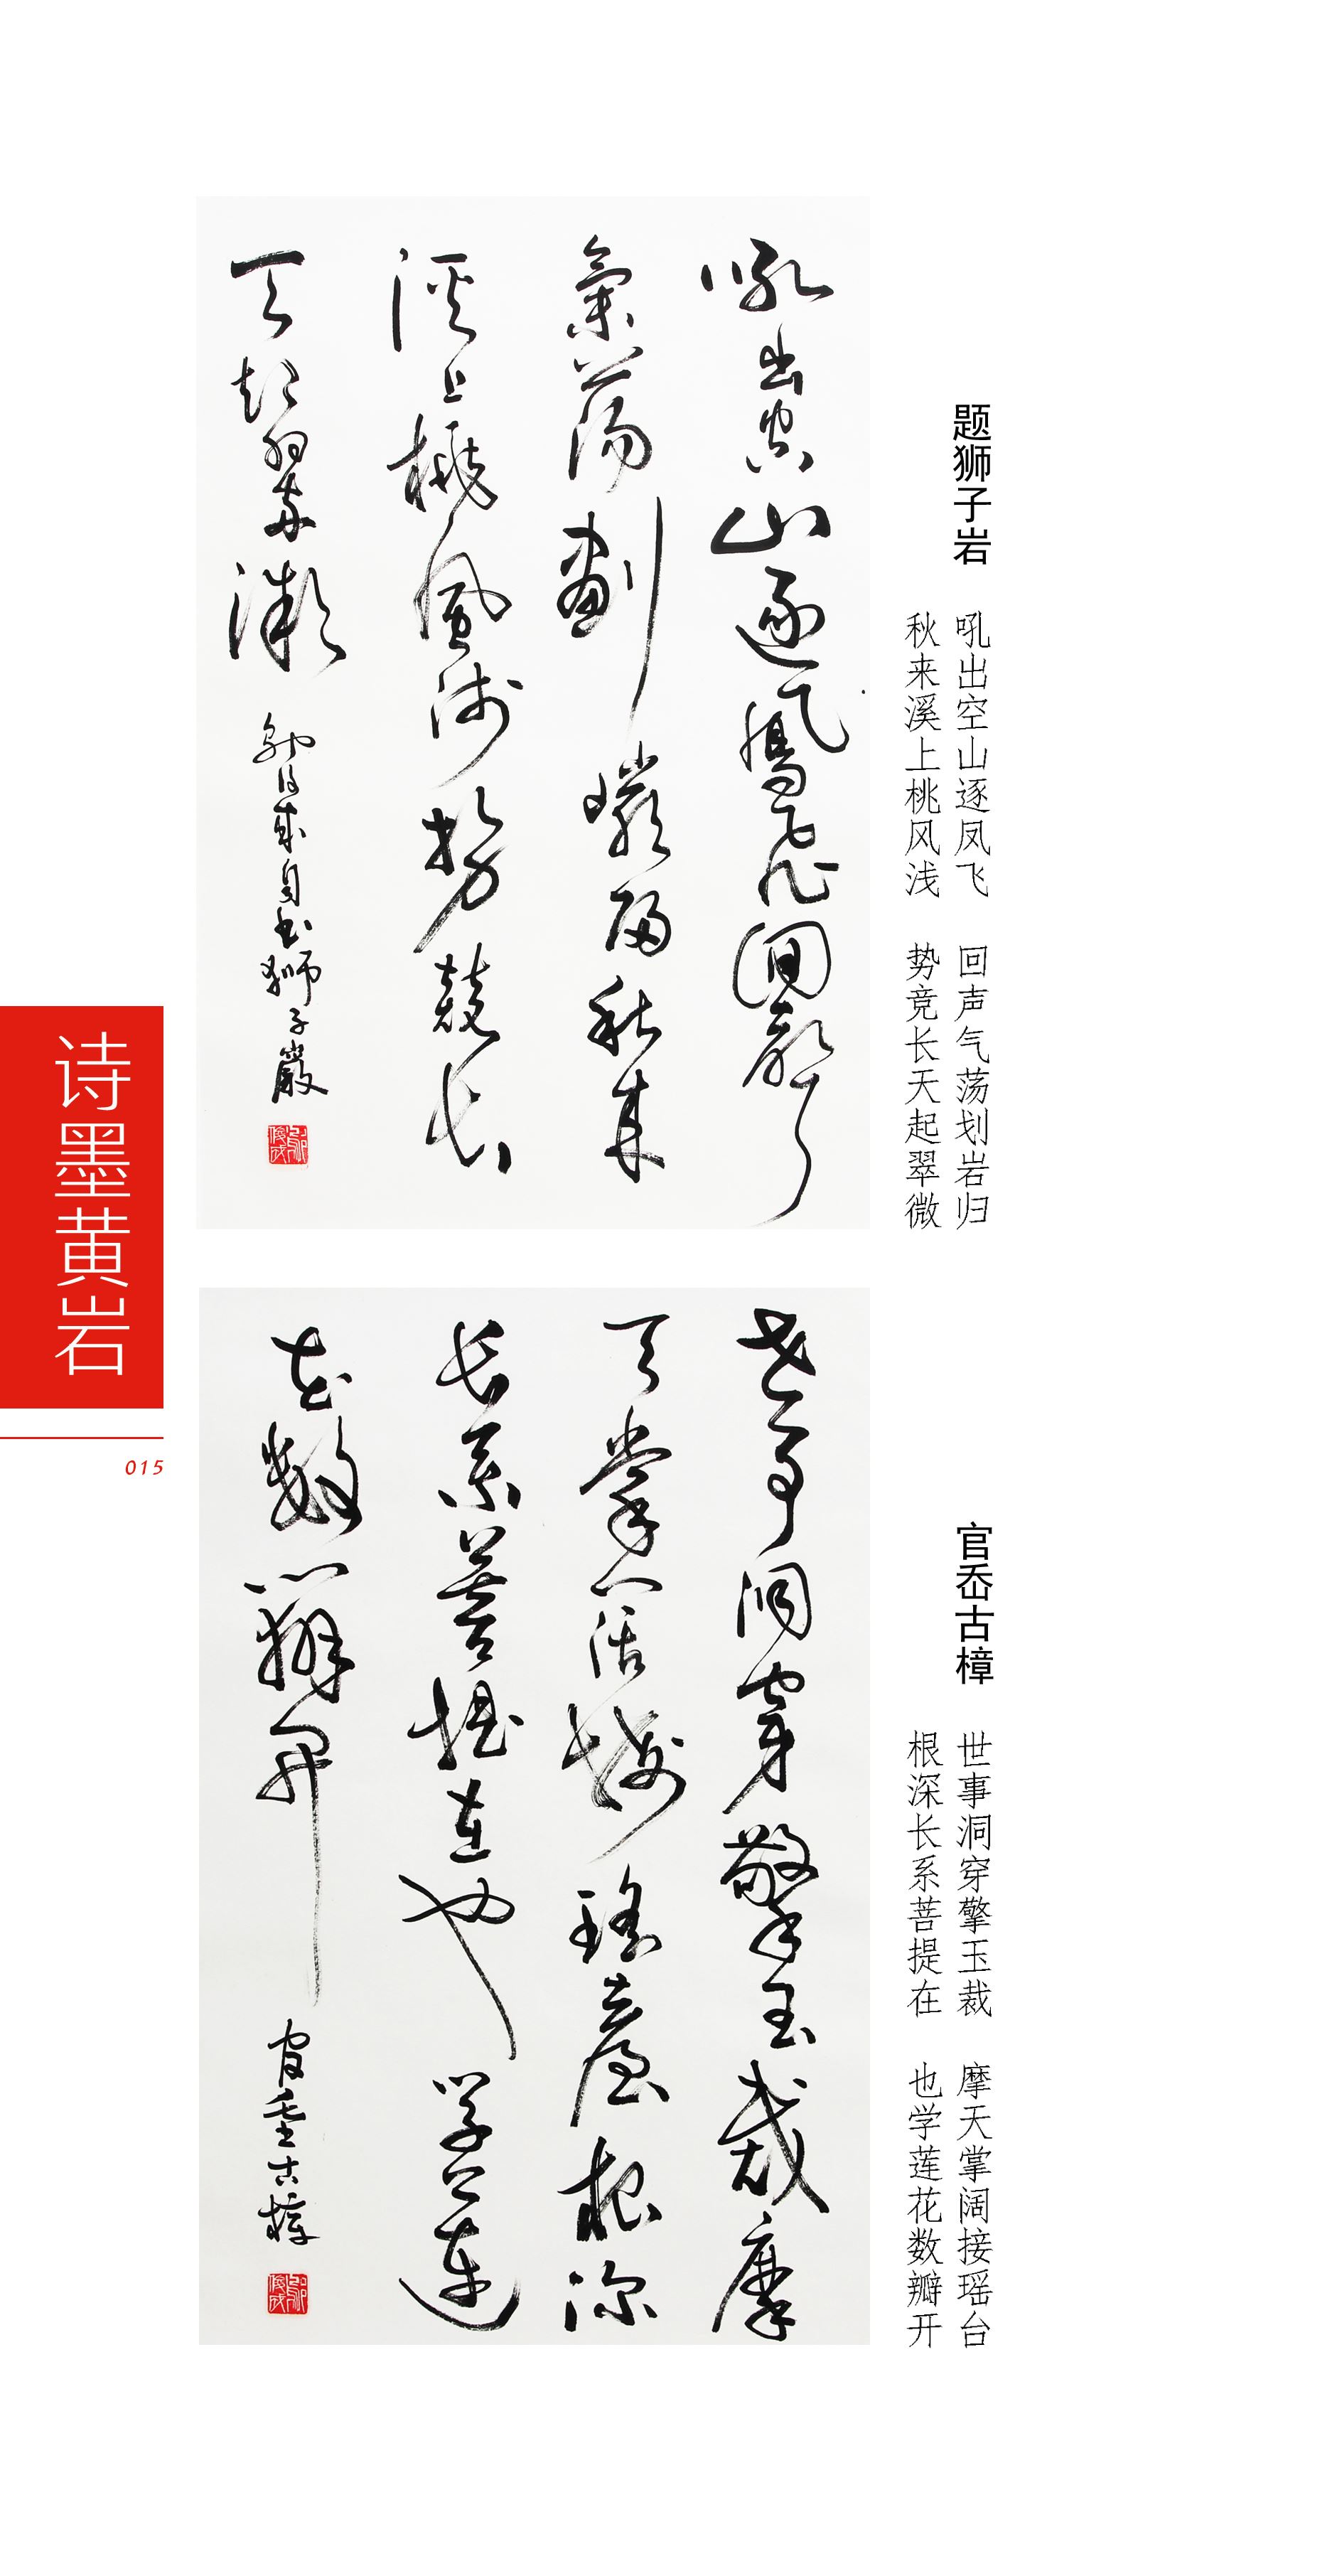 题狮子岩
吼出空山逐凤飞 回声气荡划岩归
秋来溪上桃风浅 势竞长天起翠微
吼出空山逐鳳飛回聲
氣蕩劃巖歸秋来
溪上桃風浅势競长
天起翠微
俊成自书狮子巖
官岙古樟
世事洞穿擎玉裁 摩天掌阔接瑶台
根深长系菩提在 也学莲花数瓣开
世事洞穿擎玉裁摩
天掌阔接瑶臺根深
长系菩提在也学莲
花数瓣开
官岙古樟
诗墨黄岩
015